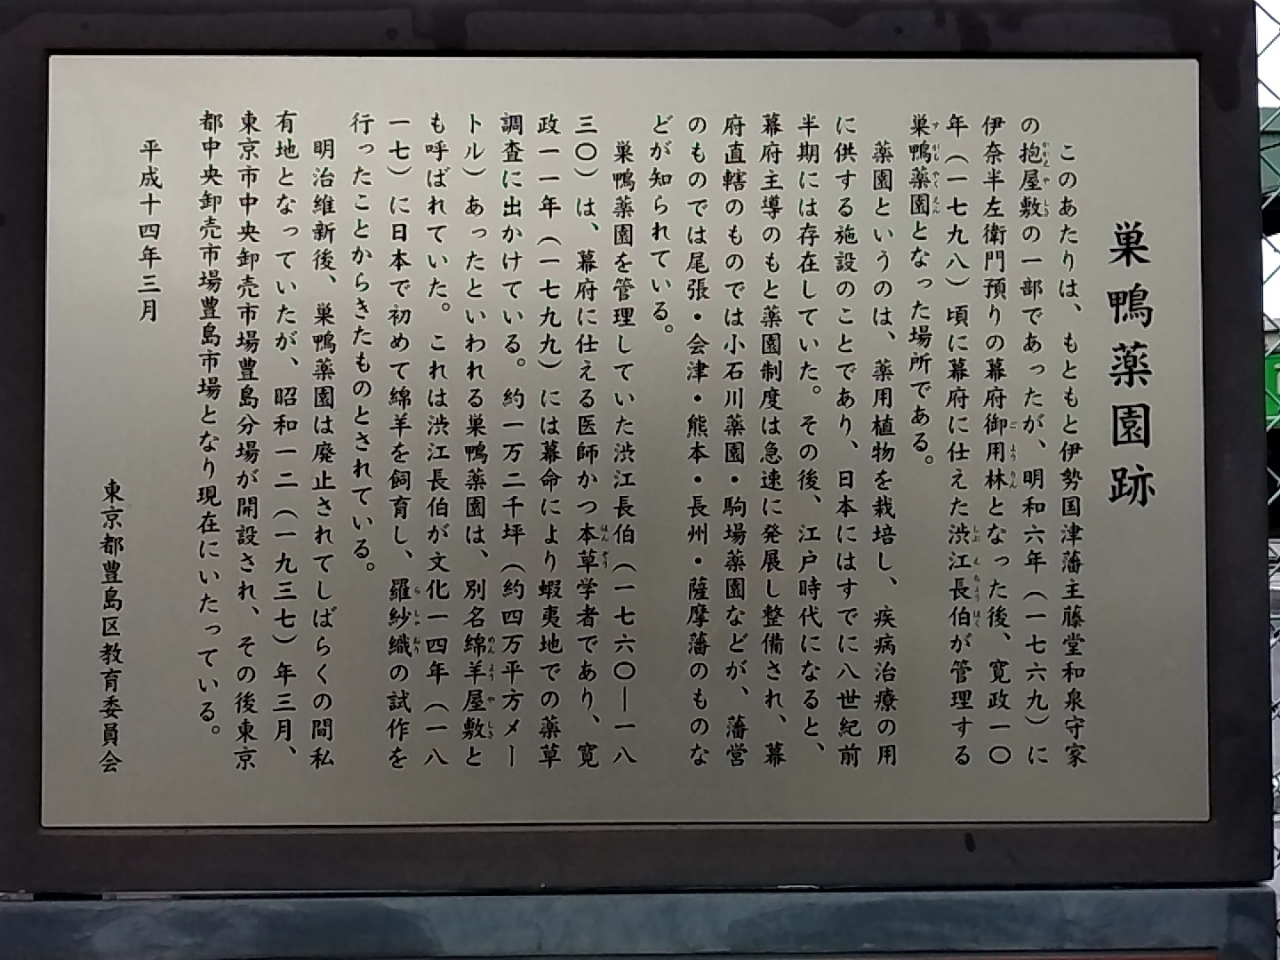 巣鴨薬園跡
このあたりは、もともと伊勢国津藩主藤堂和泉守家
の抱屋敷の一部であったが、明和六年（一七六九）に
伊奈半左衛門預りの幕府御用林となった後、寛政一〇
年（一七九八）頃に幕府に仕えた渋江長伯が管理する
巣鴨薬園となった場所である。
薬園というのは、薬用植物を栽培し、疾病治療の用
に供する施設のことであり、日本にはすでに八世紀前
半期には存在していた。その後、江戸時代になると、
幕府主導のもと薬園制度は急速に発展し整備され、幕
府直轄のものでは小石川薬園・駒場薬園などが、藩営
のものでは尾張・会津・熊本・長州・薩摩藩のものな
どが知られている。
巣鴨薬園を管理していた渋江長伯（一七六〇―一八
三〇）は、幕府に仕える医師かつ本草学者であり、寛
政一一年（一七九九）には幕命により蝦夷地での薬草
調査に出かけている。約一万二千坪（約四万平方メー
トル）あったといわれる巣鴨薬園は、別名綿羊屋敷と
も呼ばれていた。これは渋江長伯が文化一四年（一八
一七）に日本で初めて綿羊を飼育し、羅紗織の試作を
行ったことからきたものとされている。
明治維新後、巣鴨薬園は廃止されてしばらくの間私
有地となっていたが、昭和一二（一九三七）年三月、
東京市中央卸売市場豊島分場が開設され、その後東京
都中央卸売市場豊島市場となり現在にいたっている。
平成十四年三月
東京都豊島区教育委員会